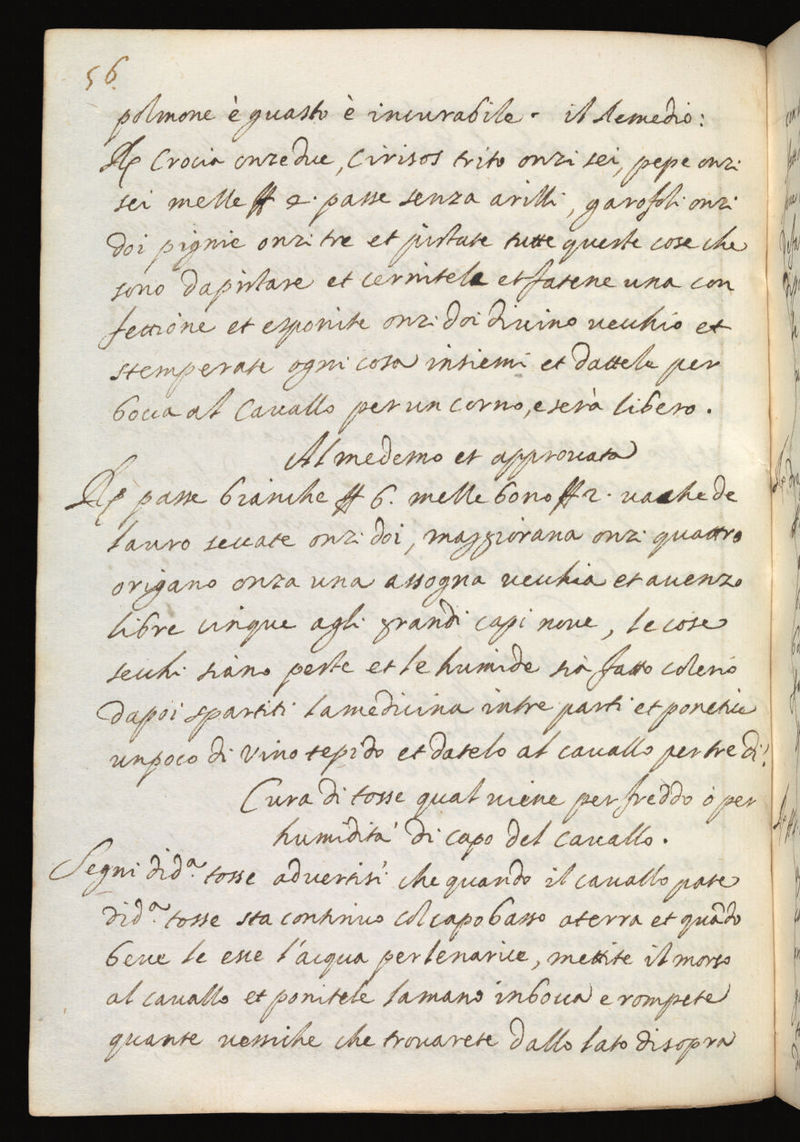 56
polmone è guasto è incurabile. il Remedio:
Rp Crocia onze due, Cirisos trito onzi sei, pepe onzi
sei melle ℔ 2. passe senza arilli, garofoli onzi
doi pignie onzi tre et pistate tutte queste cose che
sono da pistare et cernitele et fatene una con
fettione et esponite onzi doi di vino vecchio et
stemperate ogni cosa insiemi et dattele per
bocca al Cavallo per un corno, e serà libero.
Al medemo et approvata
Rp passe bianche ℔ 6. melle bono ℔ 2. vache de
lauro seccate onzi doi, maggiorana onzi quattro
origano onza una assogna vecchia et avenzo
libre cinque agli grandi capi nove, le cose
secchi siano peste et le humide sia fatto colerio
dapoi spartiti la medicina in tre parti et ponetice
un poco di vino tepido et datelo al cavallo per tre dì!
Cura di tosse qual viene per freddo o per
humidità di capo del cavallo.
Segni di d.ª tosse advertisi che quando il cavallo pate
di d.ª tosse sta continuo col capo basso a terra et quādo
beve le esce l'acqua per le narice, mettite il morso
al cavallo et ponitele la mano in bocca e rompete
quante vessiche che trovarete dallo lato di sopra